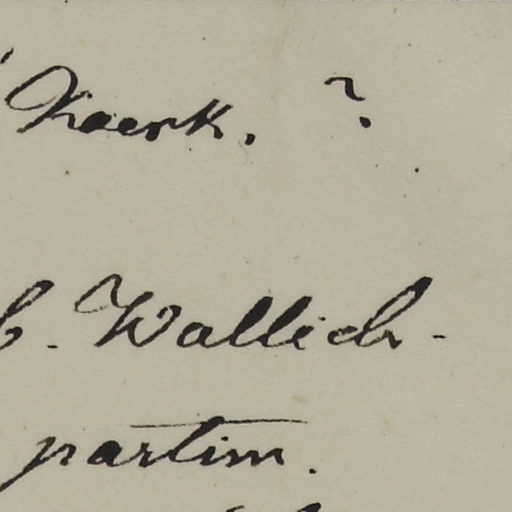 Koerk. ?
b. Wallich-
partim.